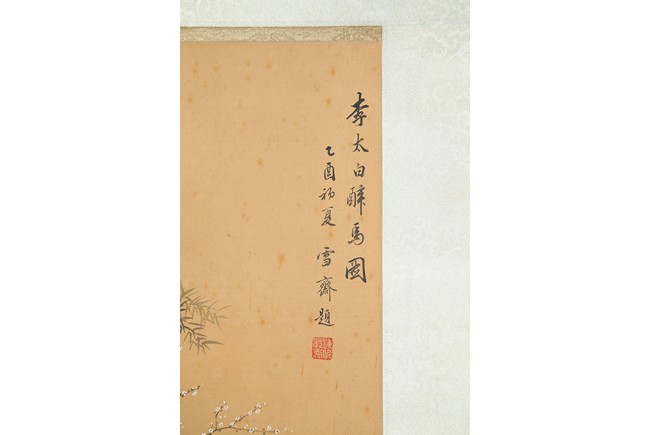 李太白醉馬圖
乙酉初夏 雪齋題